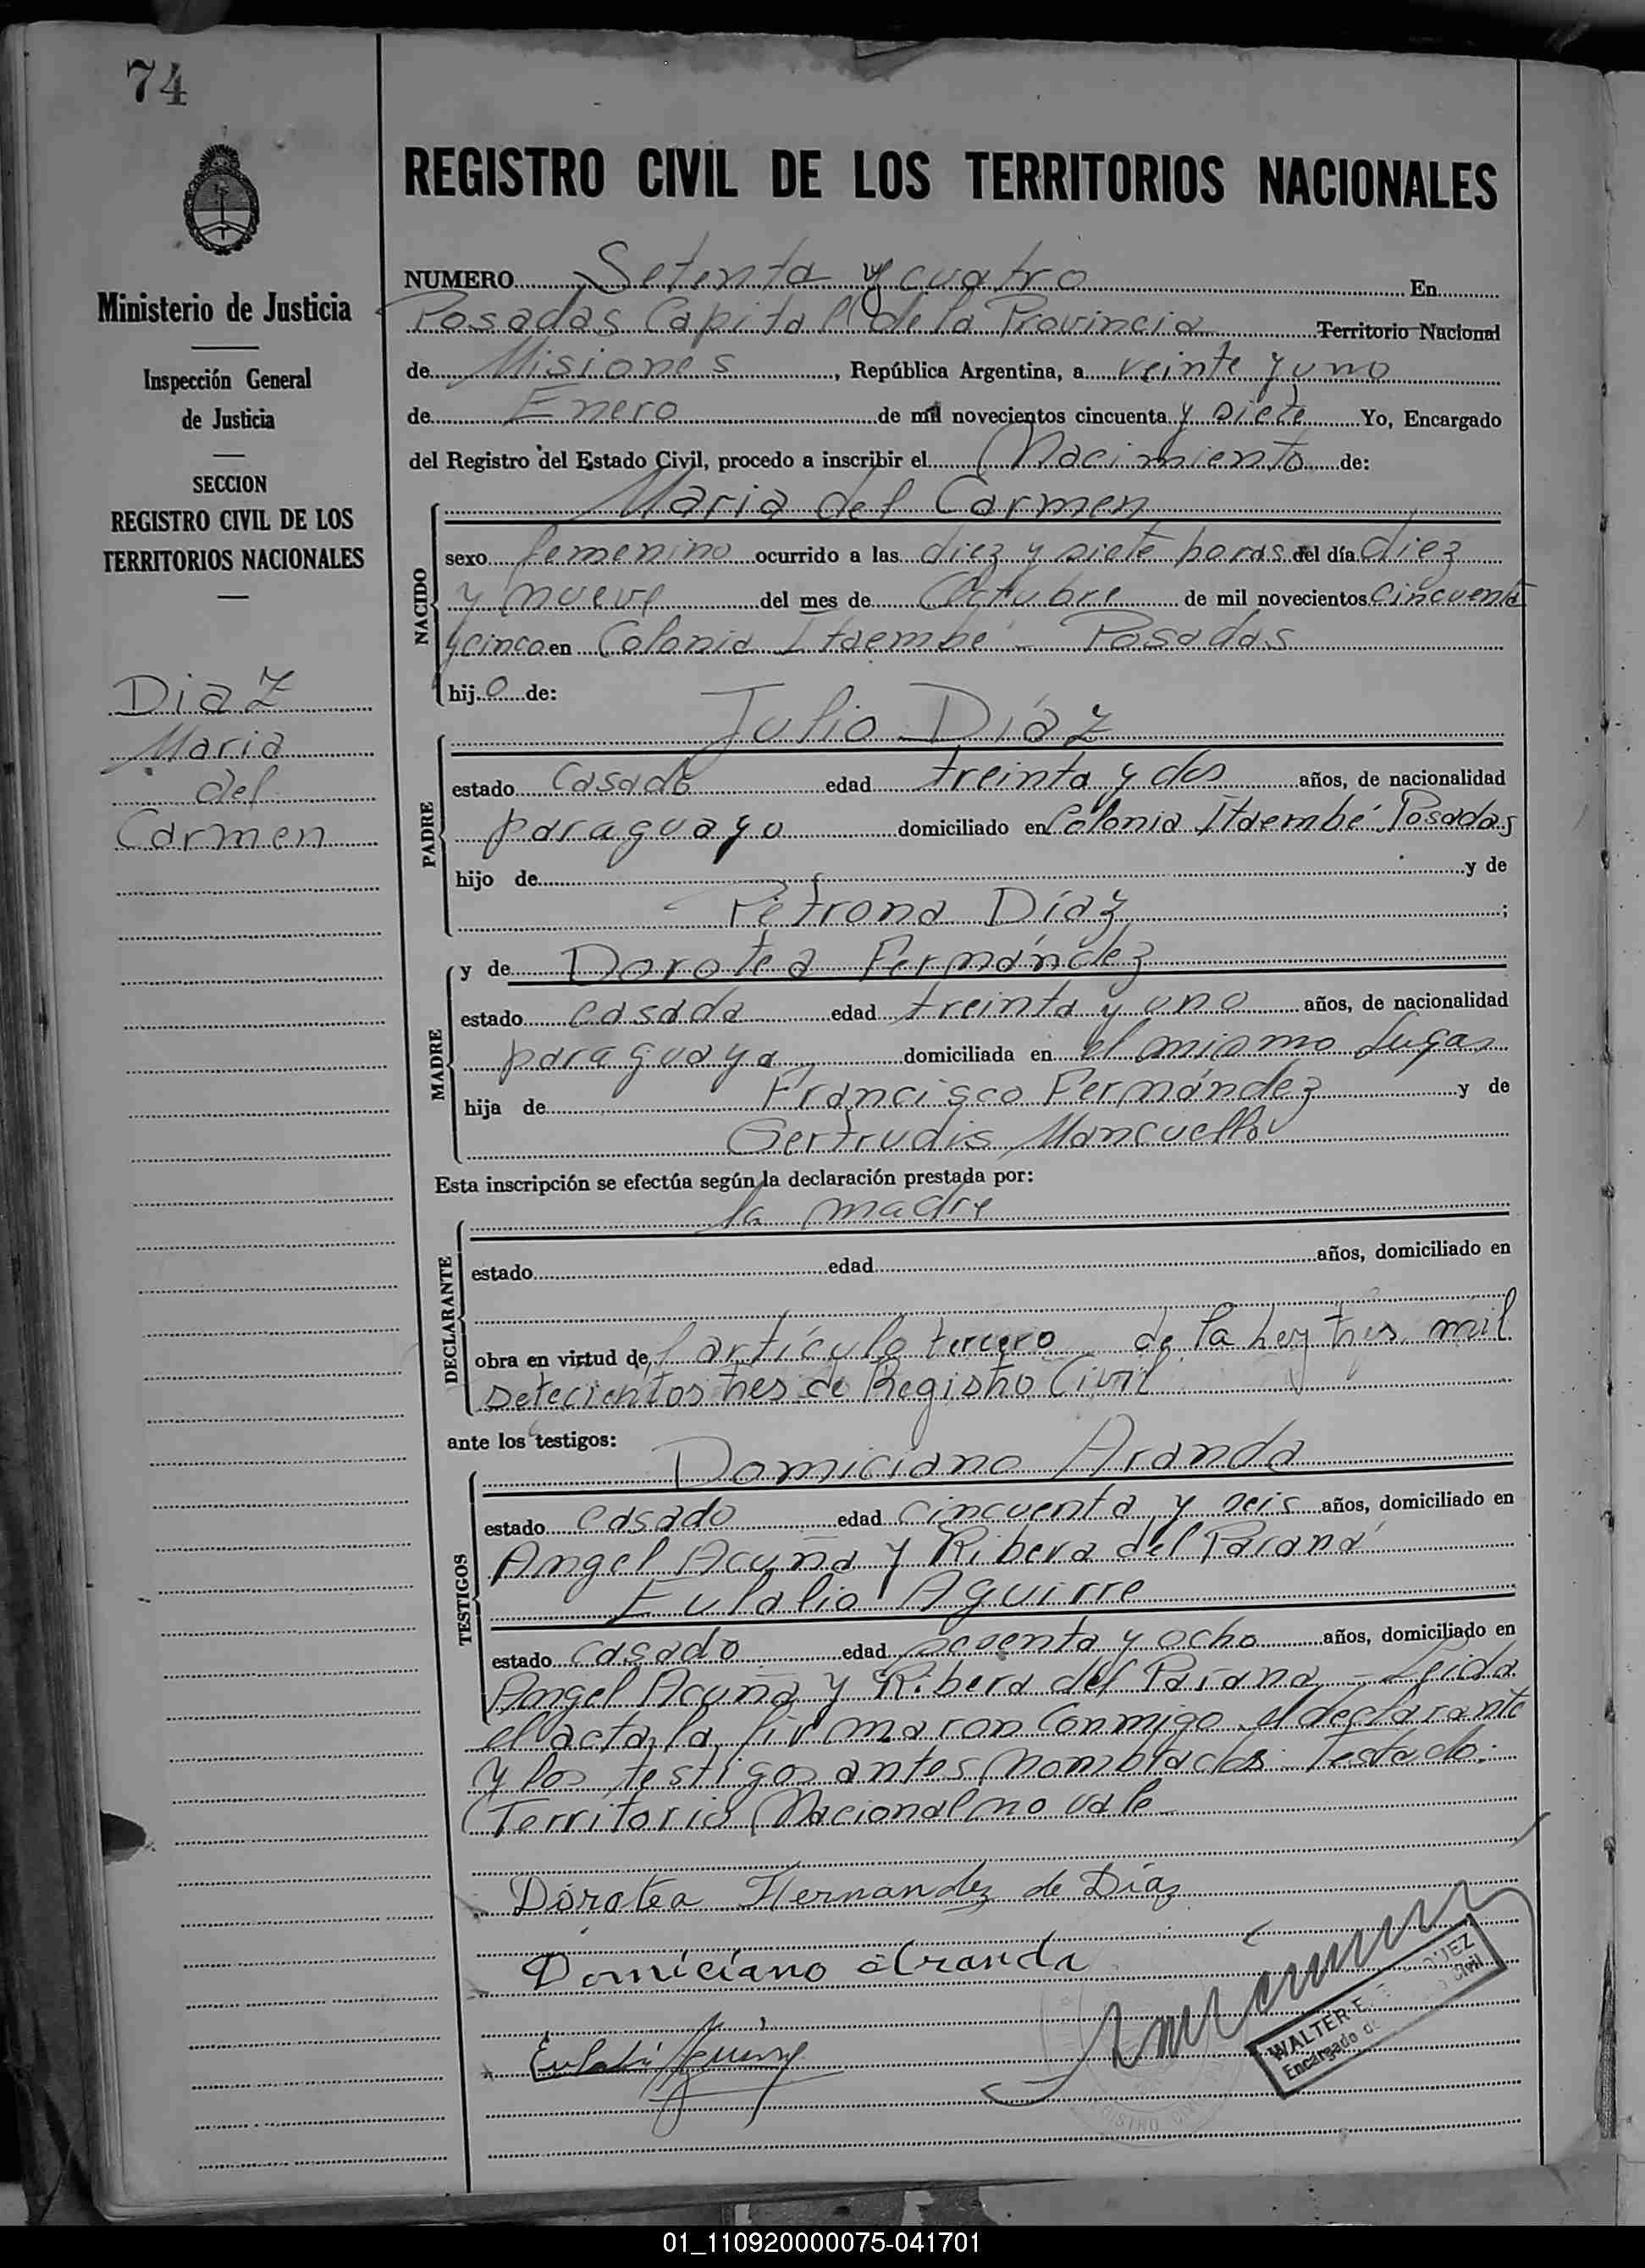 74
REGISTRO CIVIL DE LOS TERRITORIOS NACIONALES
Ministerio de Justicia
Inspección General
de Justicia
SECCION
REGISTRO CIVIL DE LOS
TERRITORIOS NACIONALES
Diaz
Maria
del
Carmen
NUMERO Setenta y cuatro En
Posadas Capital de la Provincia Territorio Nacional
de Misiones, República Argentina, a veinte y uno
de Enero de mil novecientos cincuenta y siete Yo, Encargado
del Registro del Estado Civil, procedo a inscribir el Nacimiento de:
NACIDO
Maria del Carmen
sexo femenino ocurrido a las diez y siete horas del día diez
y nueve del mes de Octubre de mil novecientos cincuenta
y cinco en Colonia Itaembé - Posadas
hij o de:
PADRE
Julio Díaz
estado Casado edad treinta y dos años, de nacionalidad
paraguayo domiciliado en Colonia Itaembé Posadas
hijo de y de
Petrona Díaz ;
MADRE
y de Dorotea Fernández
estado casada edad treinta y uno años, de nacionalidad
paraguaya domiciliada en el mismo lugar
hija de Francisco Fernández y de
Gertrudis Mancuello
Esta inscripción se efectúa según la declaración prestada por:
DECLARANTE
la madre
estado edad años, domiciliado en
obra en virtud de l artículo tercero de la ley tres mil
setecientos tres de Registro Civil
ante los testigos:
TESTIGOS
Domiciano Aranda
estado casado edad cincuenta y seis años, domiciliado en
Angel Acuña y Ribera del Paraná
Eulalio Aguirre
estado casado edad sesenta y ocho años, domiciliado en
Angel Acuña y Ribera del Parana - Leida
el acta, la firmaron conmigo el declarante
y los testigos antes nombrados - Testado:
Territorio Nacional no vale
Dorotea Hernandez de Díaz
Domiciano Aranda
Eulalio Aguirre
WALTER E.
Encargado de Civil
01_110920000075-041701